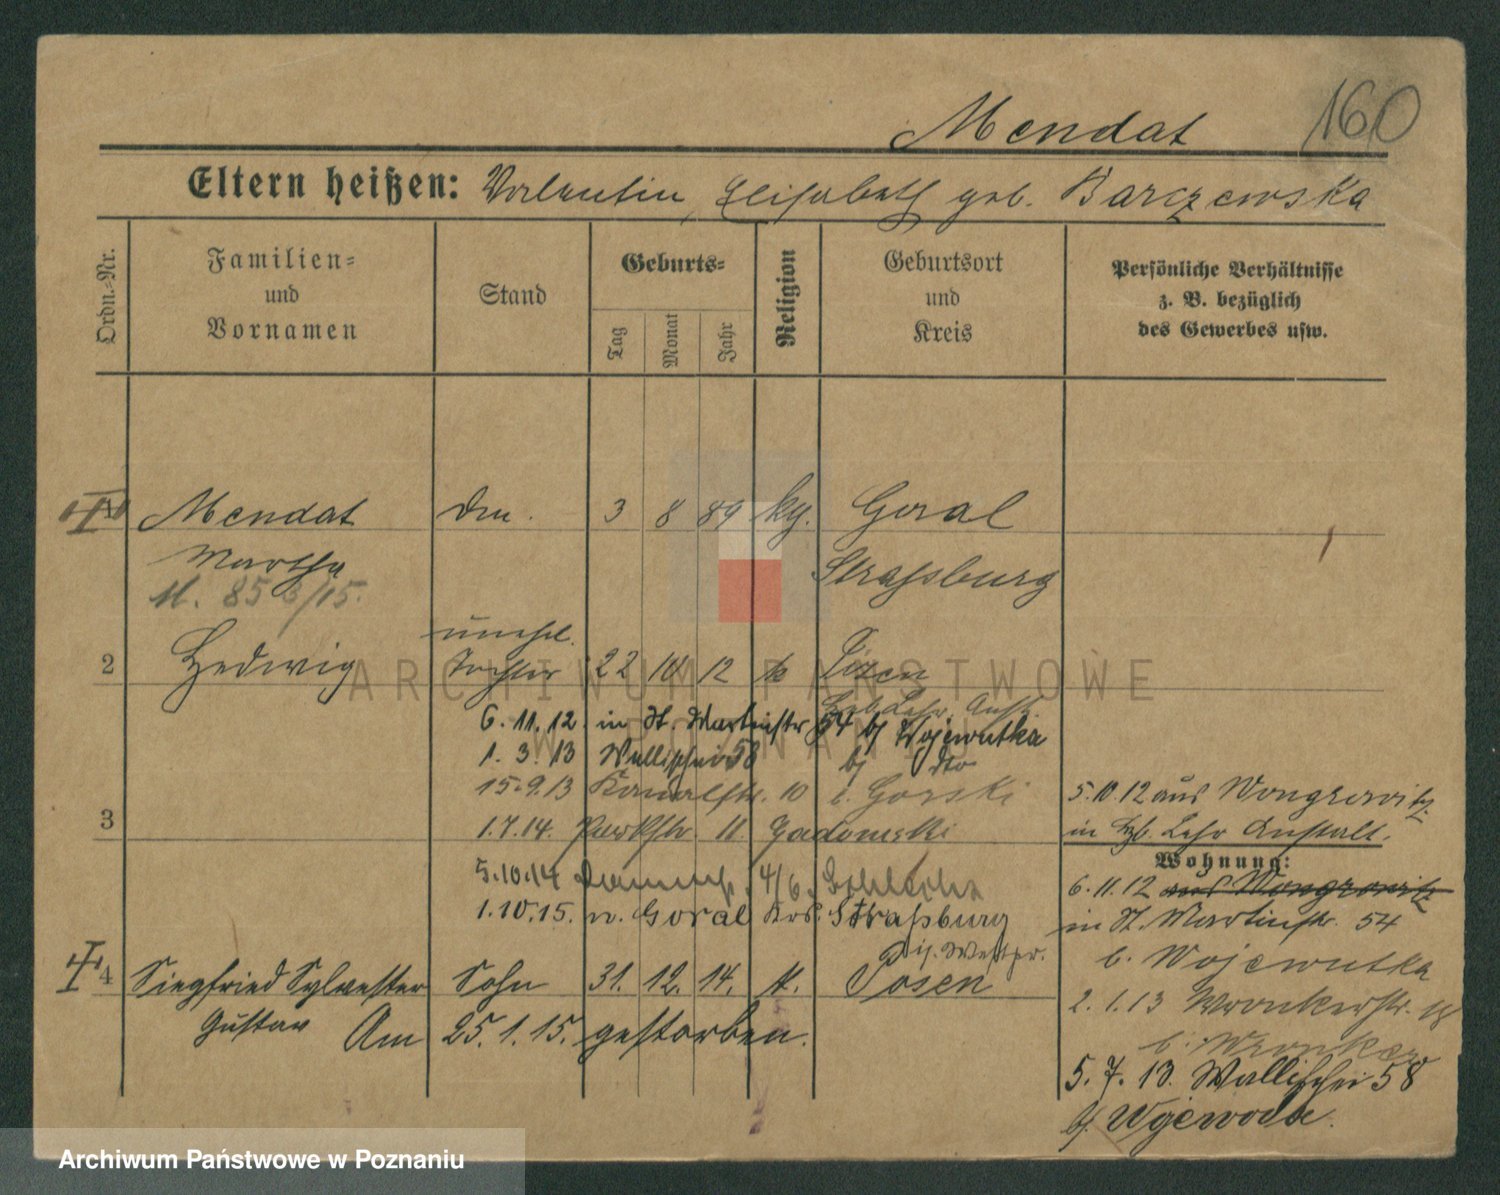 Mendat 160
Eltern heißen: Valentin, Elisabeth geb. Barczewska
Ordn.-Nr.
Familien- und Vornamen
Stand
Geburts-
Tag
Monat
Jahr
Religion
Geburtsort und Kreis
Persönliche Verhältnisse z. B. bezüglich des Gewerbes usw.
Mendat 3 8 89 kg. Goral
Martha Straßburg
85 3/15.
unehl.
2 Hedwig Tochter 22 10 12 k Posen
Heb. Lehr. Anst.
6. 11. 12. in St. Martinstr 54 bj Wojewutka
1. 3. 13 Wallischei 58 bj dto
15. 9. 13 Kanalstr. 10 b. Gorski
3
1. 7. 14. Parkstr 11. Gadomski
5. 10. 14
1. 10. 15. n. Goral Krs. Straßburg
Westpr.
4 Siegfried Sylvester Sohn 31. 12. 14. k. Posen
Gustav Am 25. 1. 15. gestorben.
5. 10. 12 aus Wongrowitz
in Heb. Lehr Anstalt.
Wohnung:
6. 11. 12 aus Wongrowitz
in St. Martinstr. 54
b. Wojewutka
2. 1. 13 Wronkerstr. 18
b. Wronker
5. 7. 13. Wallischei 58
bj. Wojewoda.
ARCHIWUM PAŃSTWOWE
W POZNANIU
Archiwum Państwowe w Poznaniu